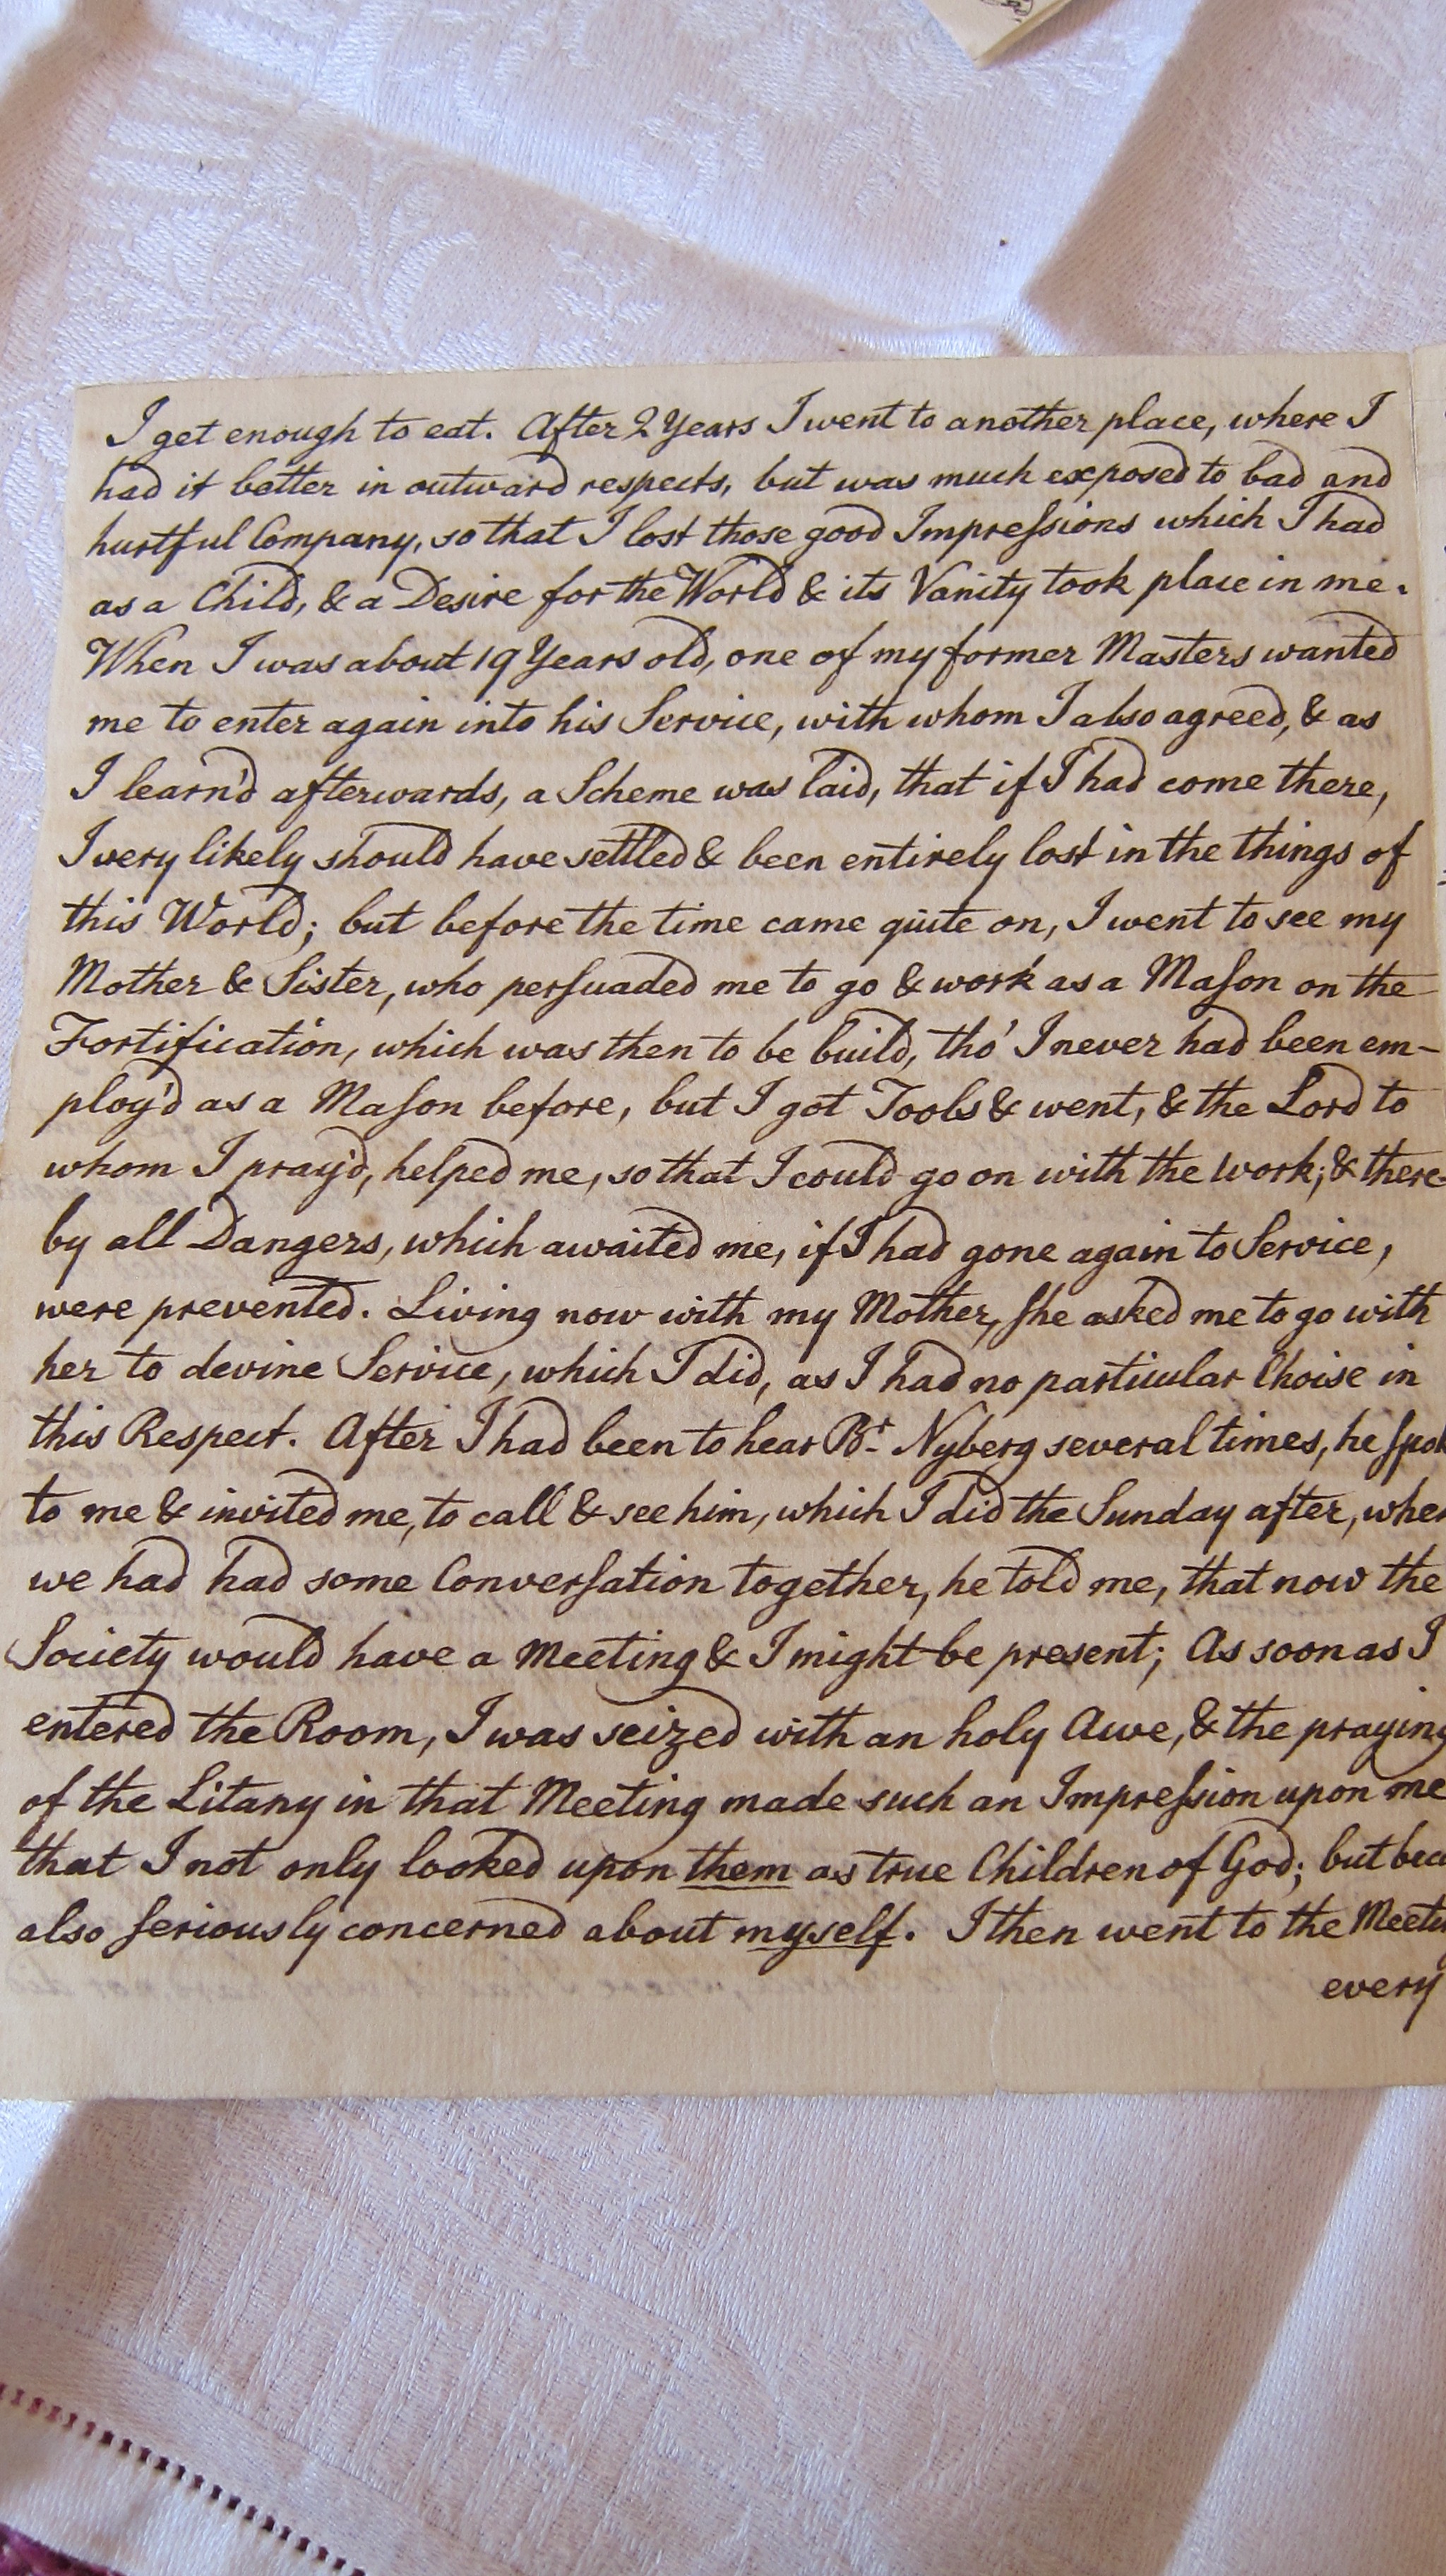 I get enough to eat. After 2 Years I went to another place, where I
had it better in outward respects, but was much exposed to bad and
hurtful Company, so that I lost those good Impreſsions which I had
as a Child, & a Desire for the World & its Vanity took place in me.
When I was about 19 Years old, one of my former Masters wanted
me to enter again into his Service, with whom I also agreed, & as
I learn'd afterwards, a Scheme was laid, that if I had come there,
I very likely should have settled & been entirely lost in the things of
this World; but before the time came quite on, I went to see my
Mother & Sister, who perſuaded me to go & work as a Maſon on the
Fortification, which was then to be build, tho' I never had been em-
ploy'd as a Maſon before, but I got Tools & went, & the Lord to
whom I pray'd, helped me, so that I could go on with the work; & there-
by all Dangers, which awaited me, if I had gone again to Service,
were prevented. Living now with my Mother, ſhe asked me to go with
her to devine Service, which I did, as I had no particular Choise in
this Respect. After I had been to hear Br. Nyberg several times, he ſpok
to me & invited me, to call & see him, which I did the Sunday after, when
we had had some Converſation together, he told me, that now the
Society would have a Meeting & I might be present; As soon as I
entered the Room, I was seized with an holy Awe, & the praying
of the Litany in that Meeting made such an Impreſsion upon me
that I not only looked upon them as true Children of God; but bec
also ſeriously concerned about myself. I then went to the Meeti
every